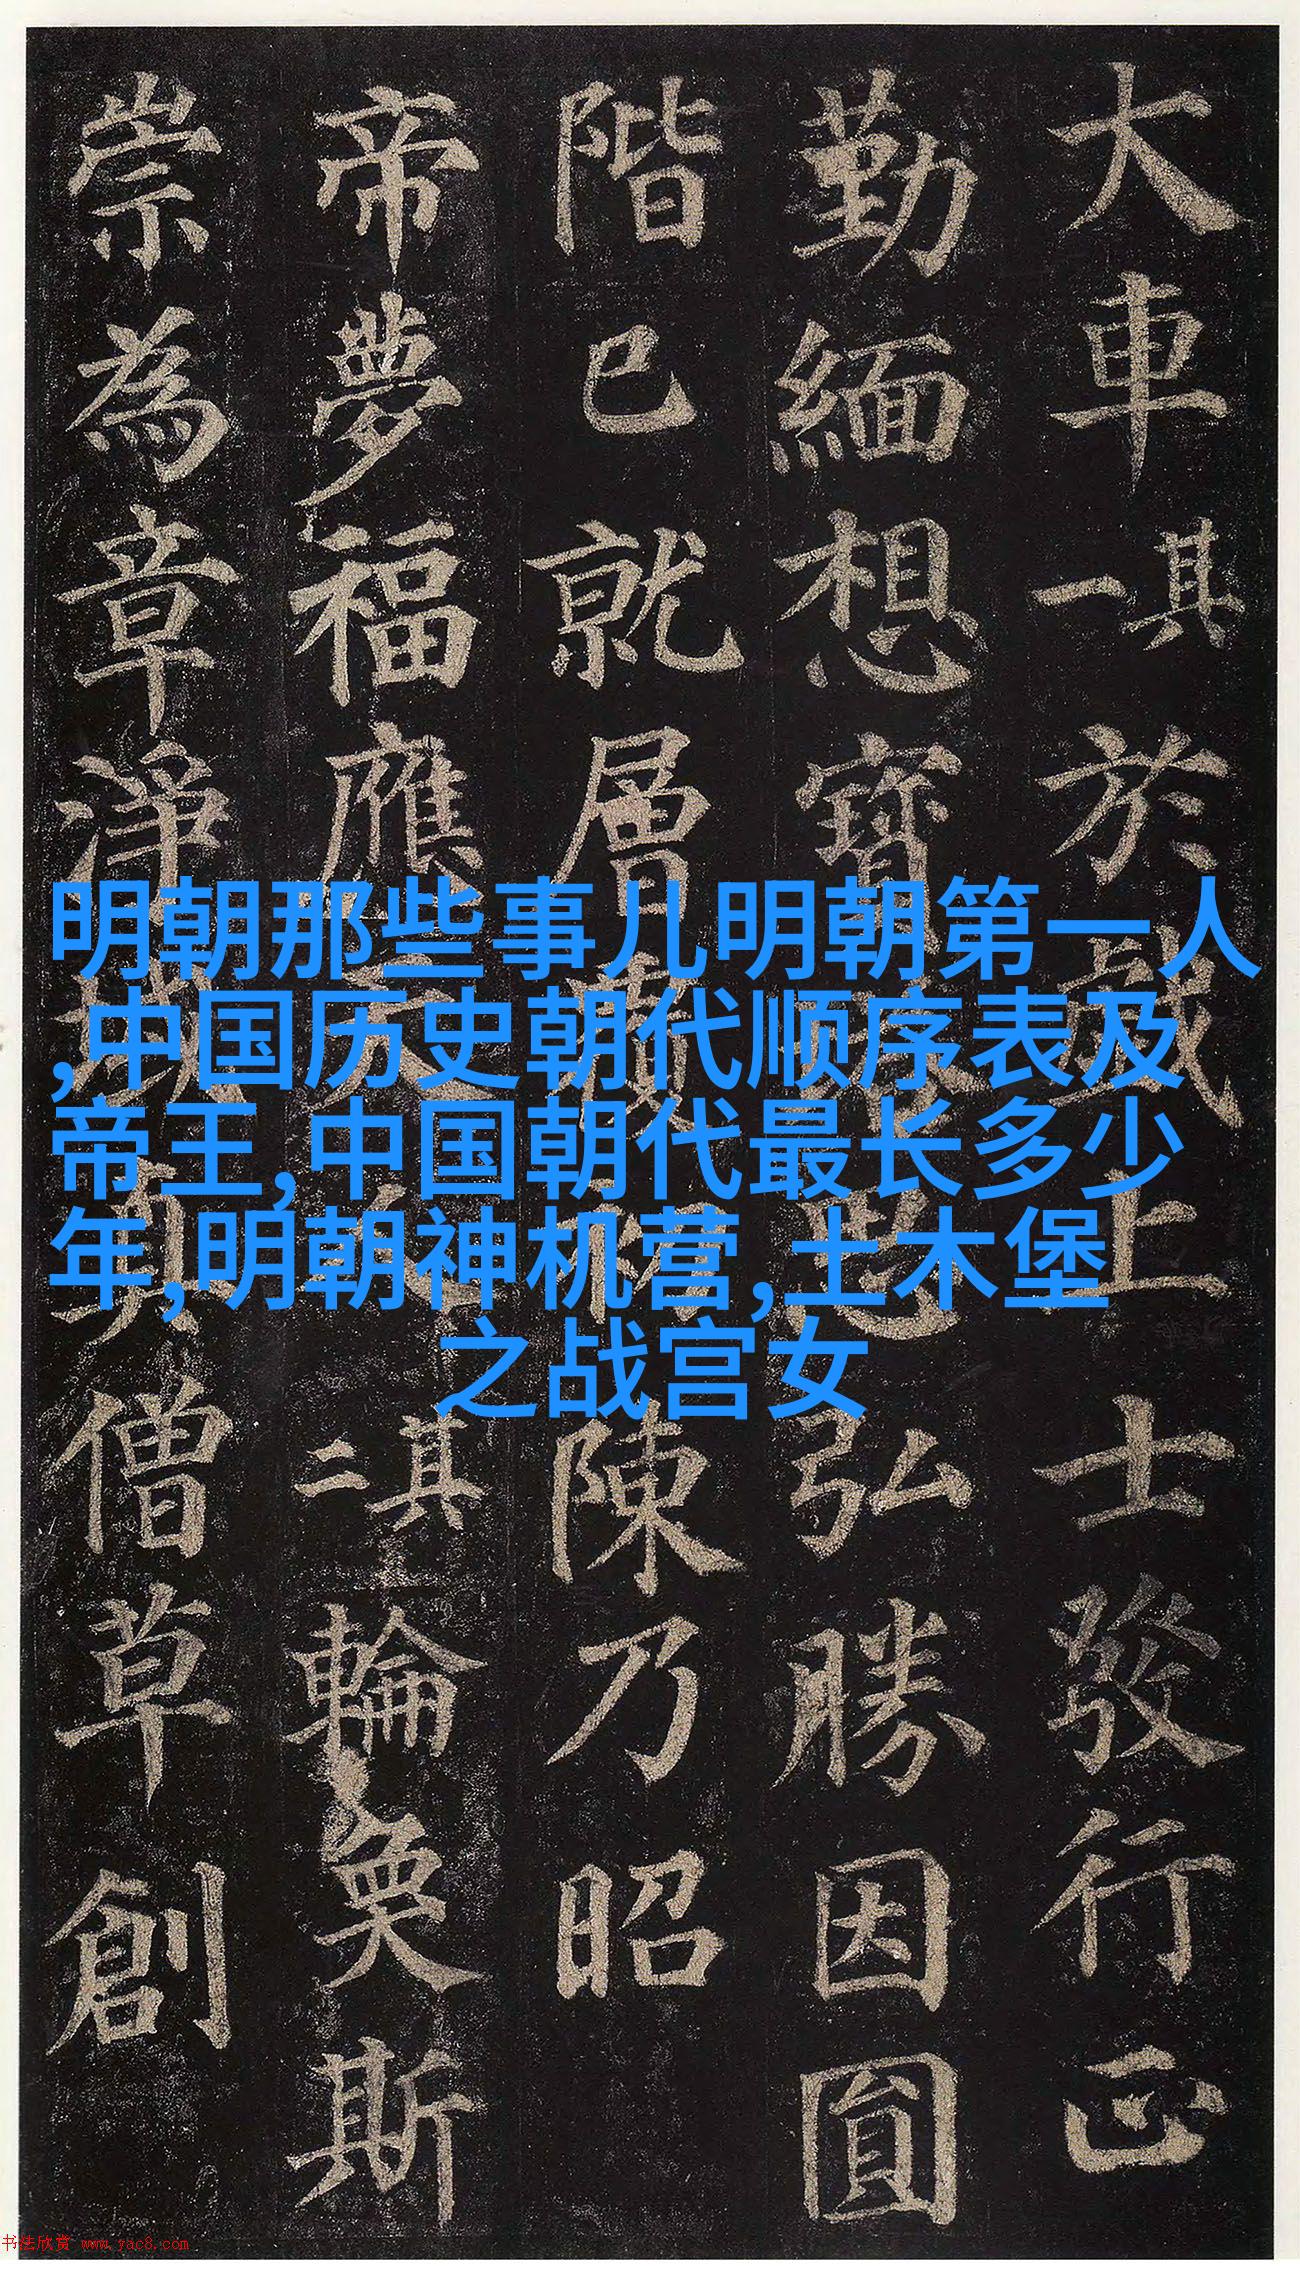 大車其一於戲上士發行正
勤緬想寶思弘勝因圓
階已就層覆陳乃昭
帝夢福應其二輪奐斯
崇為章淨域真僧草創
明朝那些事儿明朝第一人
,中国历史朝代顺序表及
帝王,中国朝代最长多少
年,明朝神机营,土木堡
之战宫女
书法欣赏 www.yac8.com